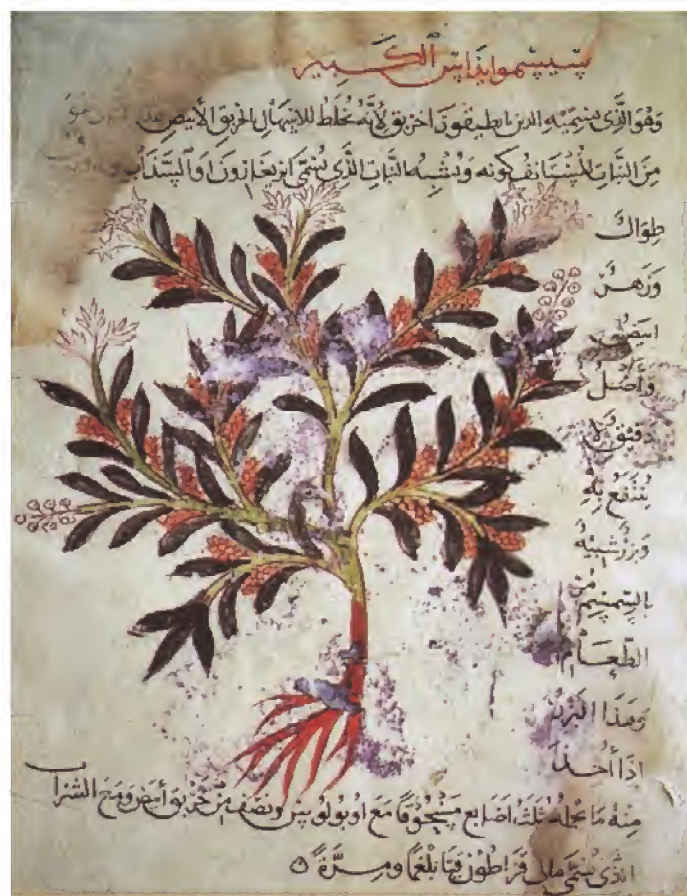 سيسمواىداس الكبير
وهو الذي يسميه الذين بانطيقون اخربق لأنه يخلط للاسهال الخربق الأبيض
من النبات المستانف كونه ويشبه النبات الذي يسمى ايريغازون والسذاب
طوال
وزهر
ابيض
واصل
دقيق لا
ينتفع به
وبزر شبيه
بالسمسم من
الطعام
وهذا البزر
اذا أخذ
منه ما يحمله ثلث اصابع مسحوقا مع اوبولوس ونصف من خربق أبيض ومع الشراب
الذي يسمى مالي قراطون قيا بلغما ومرة ه